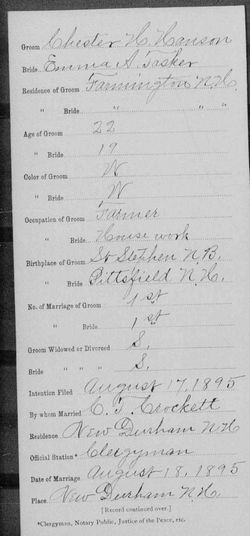 Groom Chester H. Hanson
Bride Emma A. Tasker
Residence of Groom Farmington N.H.
" Bride " " "
Age of Groom 22
" Bride 19
Color of Groom W
" Bride W
Occupation of Groom Farmer
" Bride House work
Birthplace of Groom St Stephen N.B.
" Bride Pittsfield N.H.
No. of Marriage of Groom 1st
" Bride 1st
Groom Widowed or Divorced S.
Bride " " " S.
Intention Filed August 17, 1895
By whom Married C. T. Crockett
Residence New Durham N.H
Official Station* Clergyman
Date of Marriage August 18, 1895
Place New Durham N.H.
[Record continued over.]
*Clergyman, Notary Public, Justice of the Peace, etc.